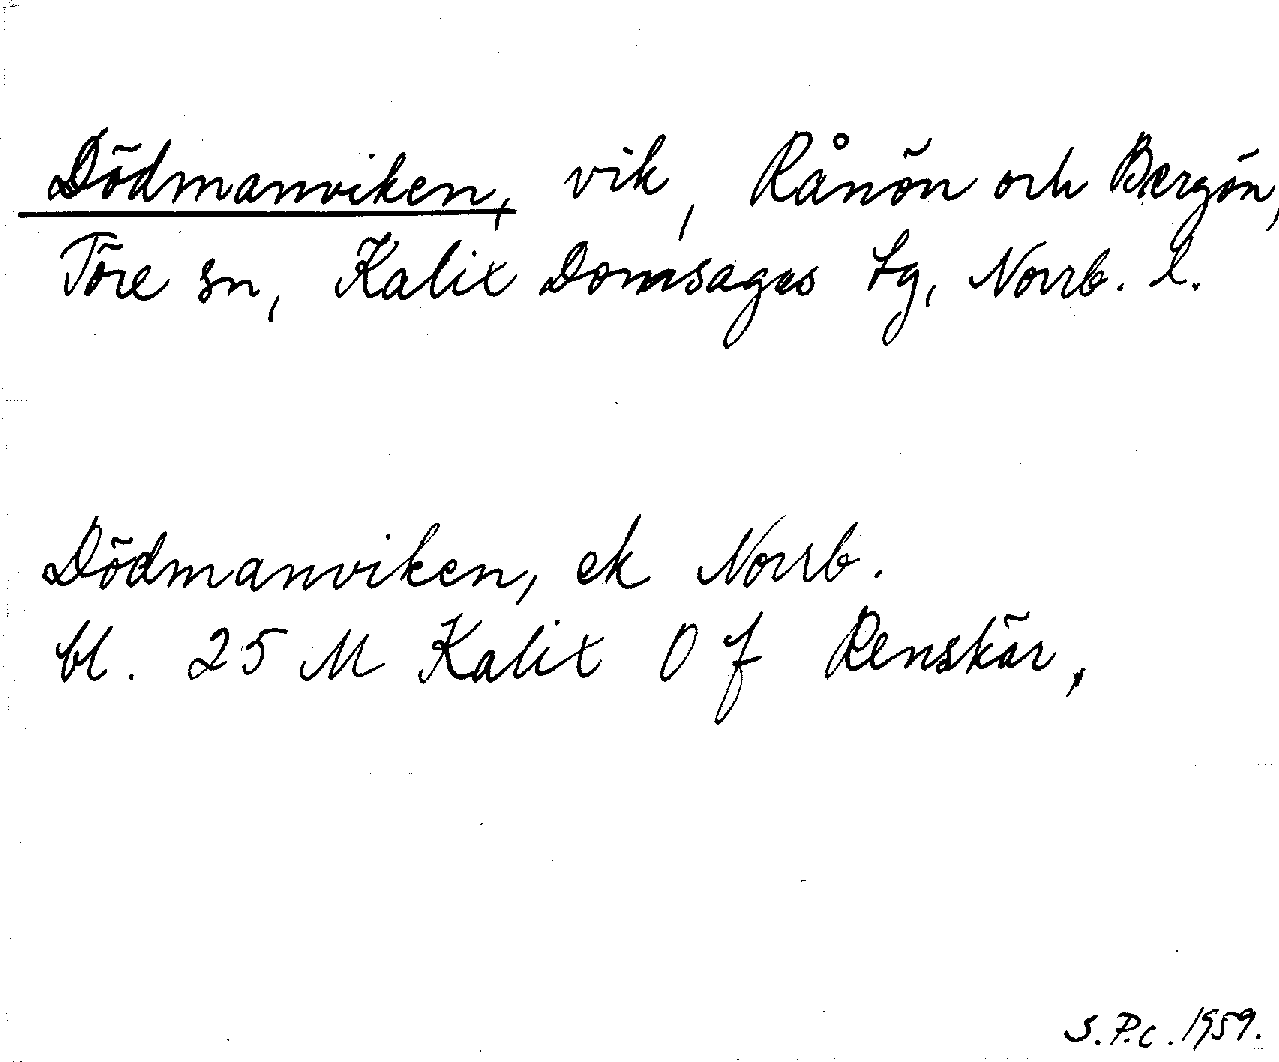 Dödmanviken, vik, Rånön och Bergön,
Töre sn, Kalix Domsagas tg, Norrb. l.
Dödmanviken, ek Norrb.
bl. 25 M Kalix O f Renskär,
S.P.c. 1959.